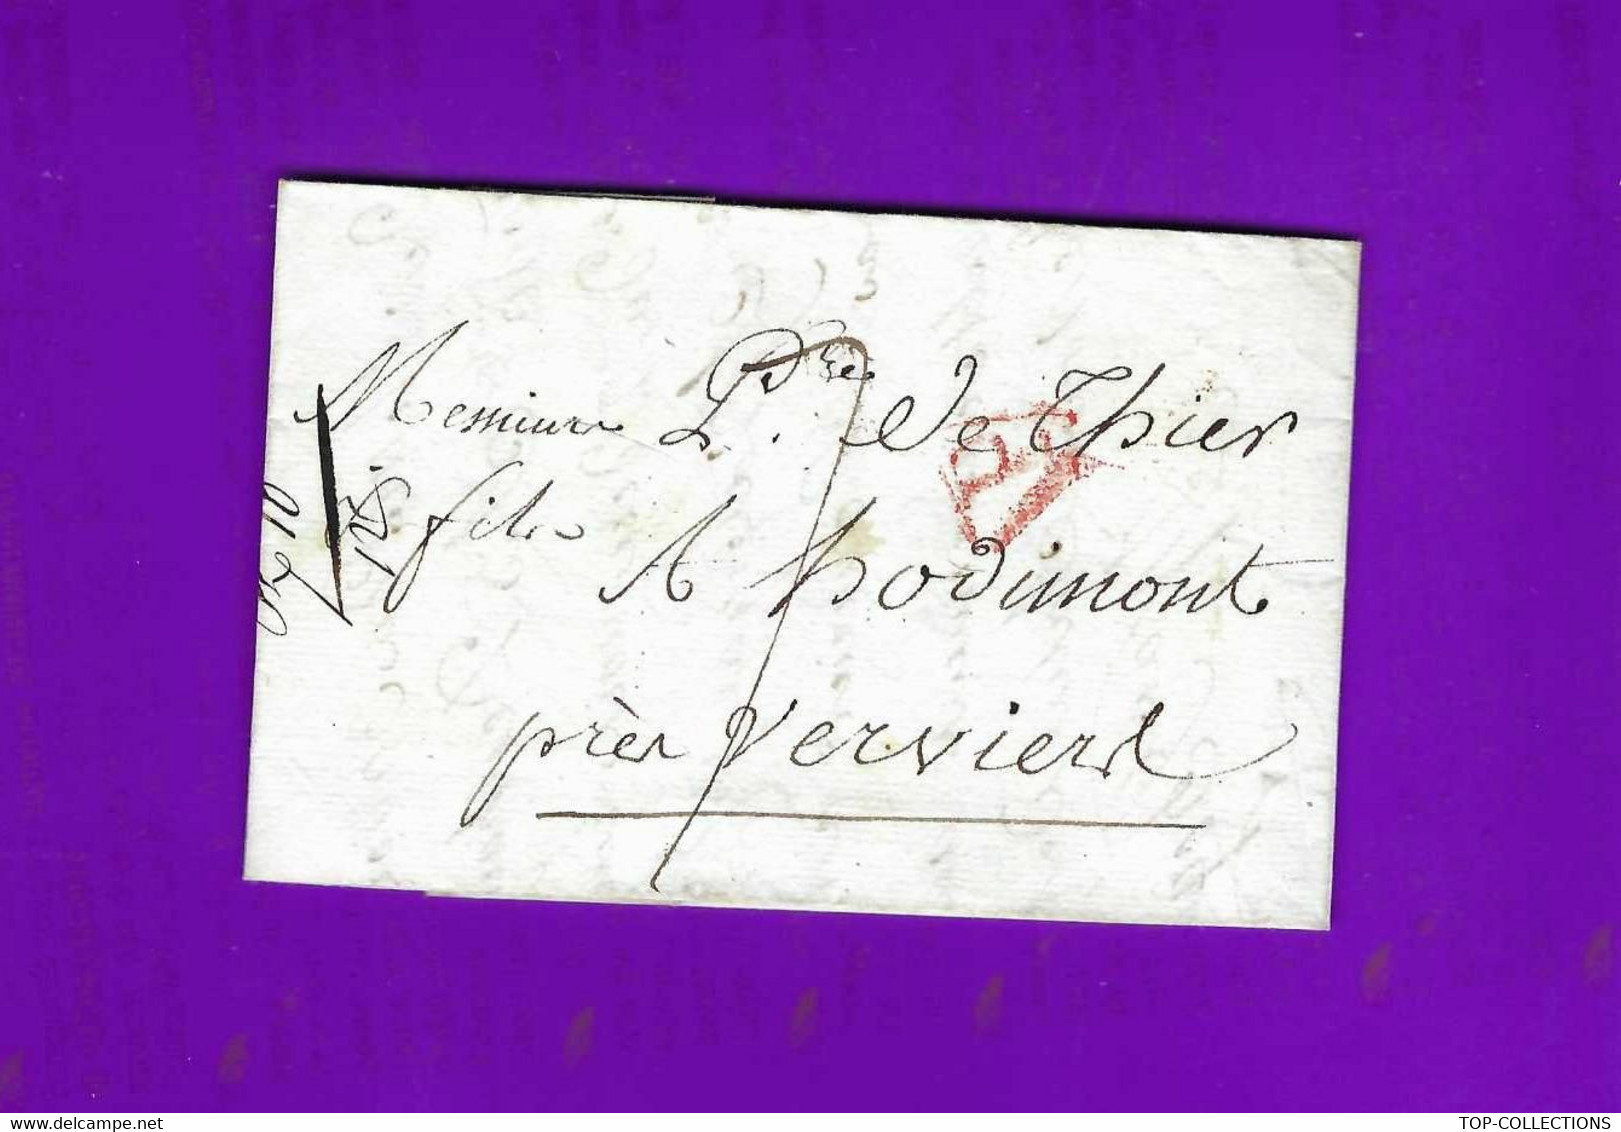 Messieurs P. Pre De Thier
& fils
A hodimont
près Verviers
delcampe.net
TOP-COLLECTIONS